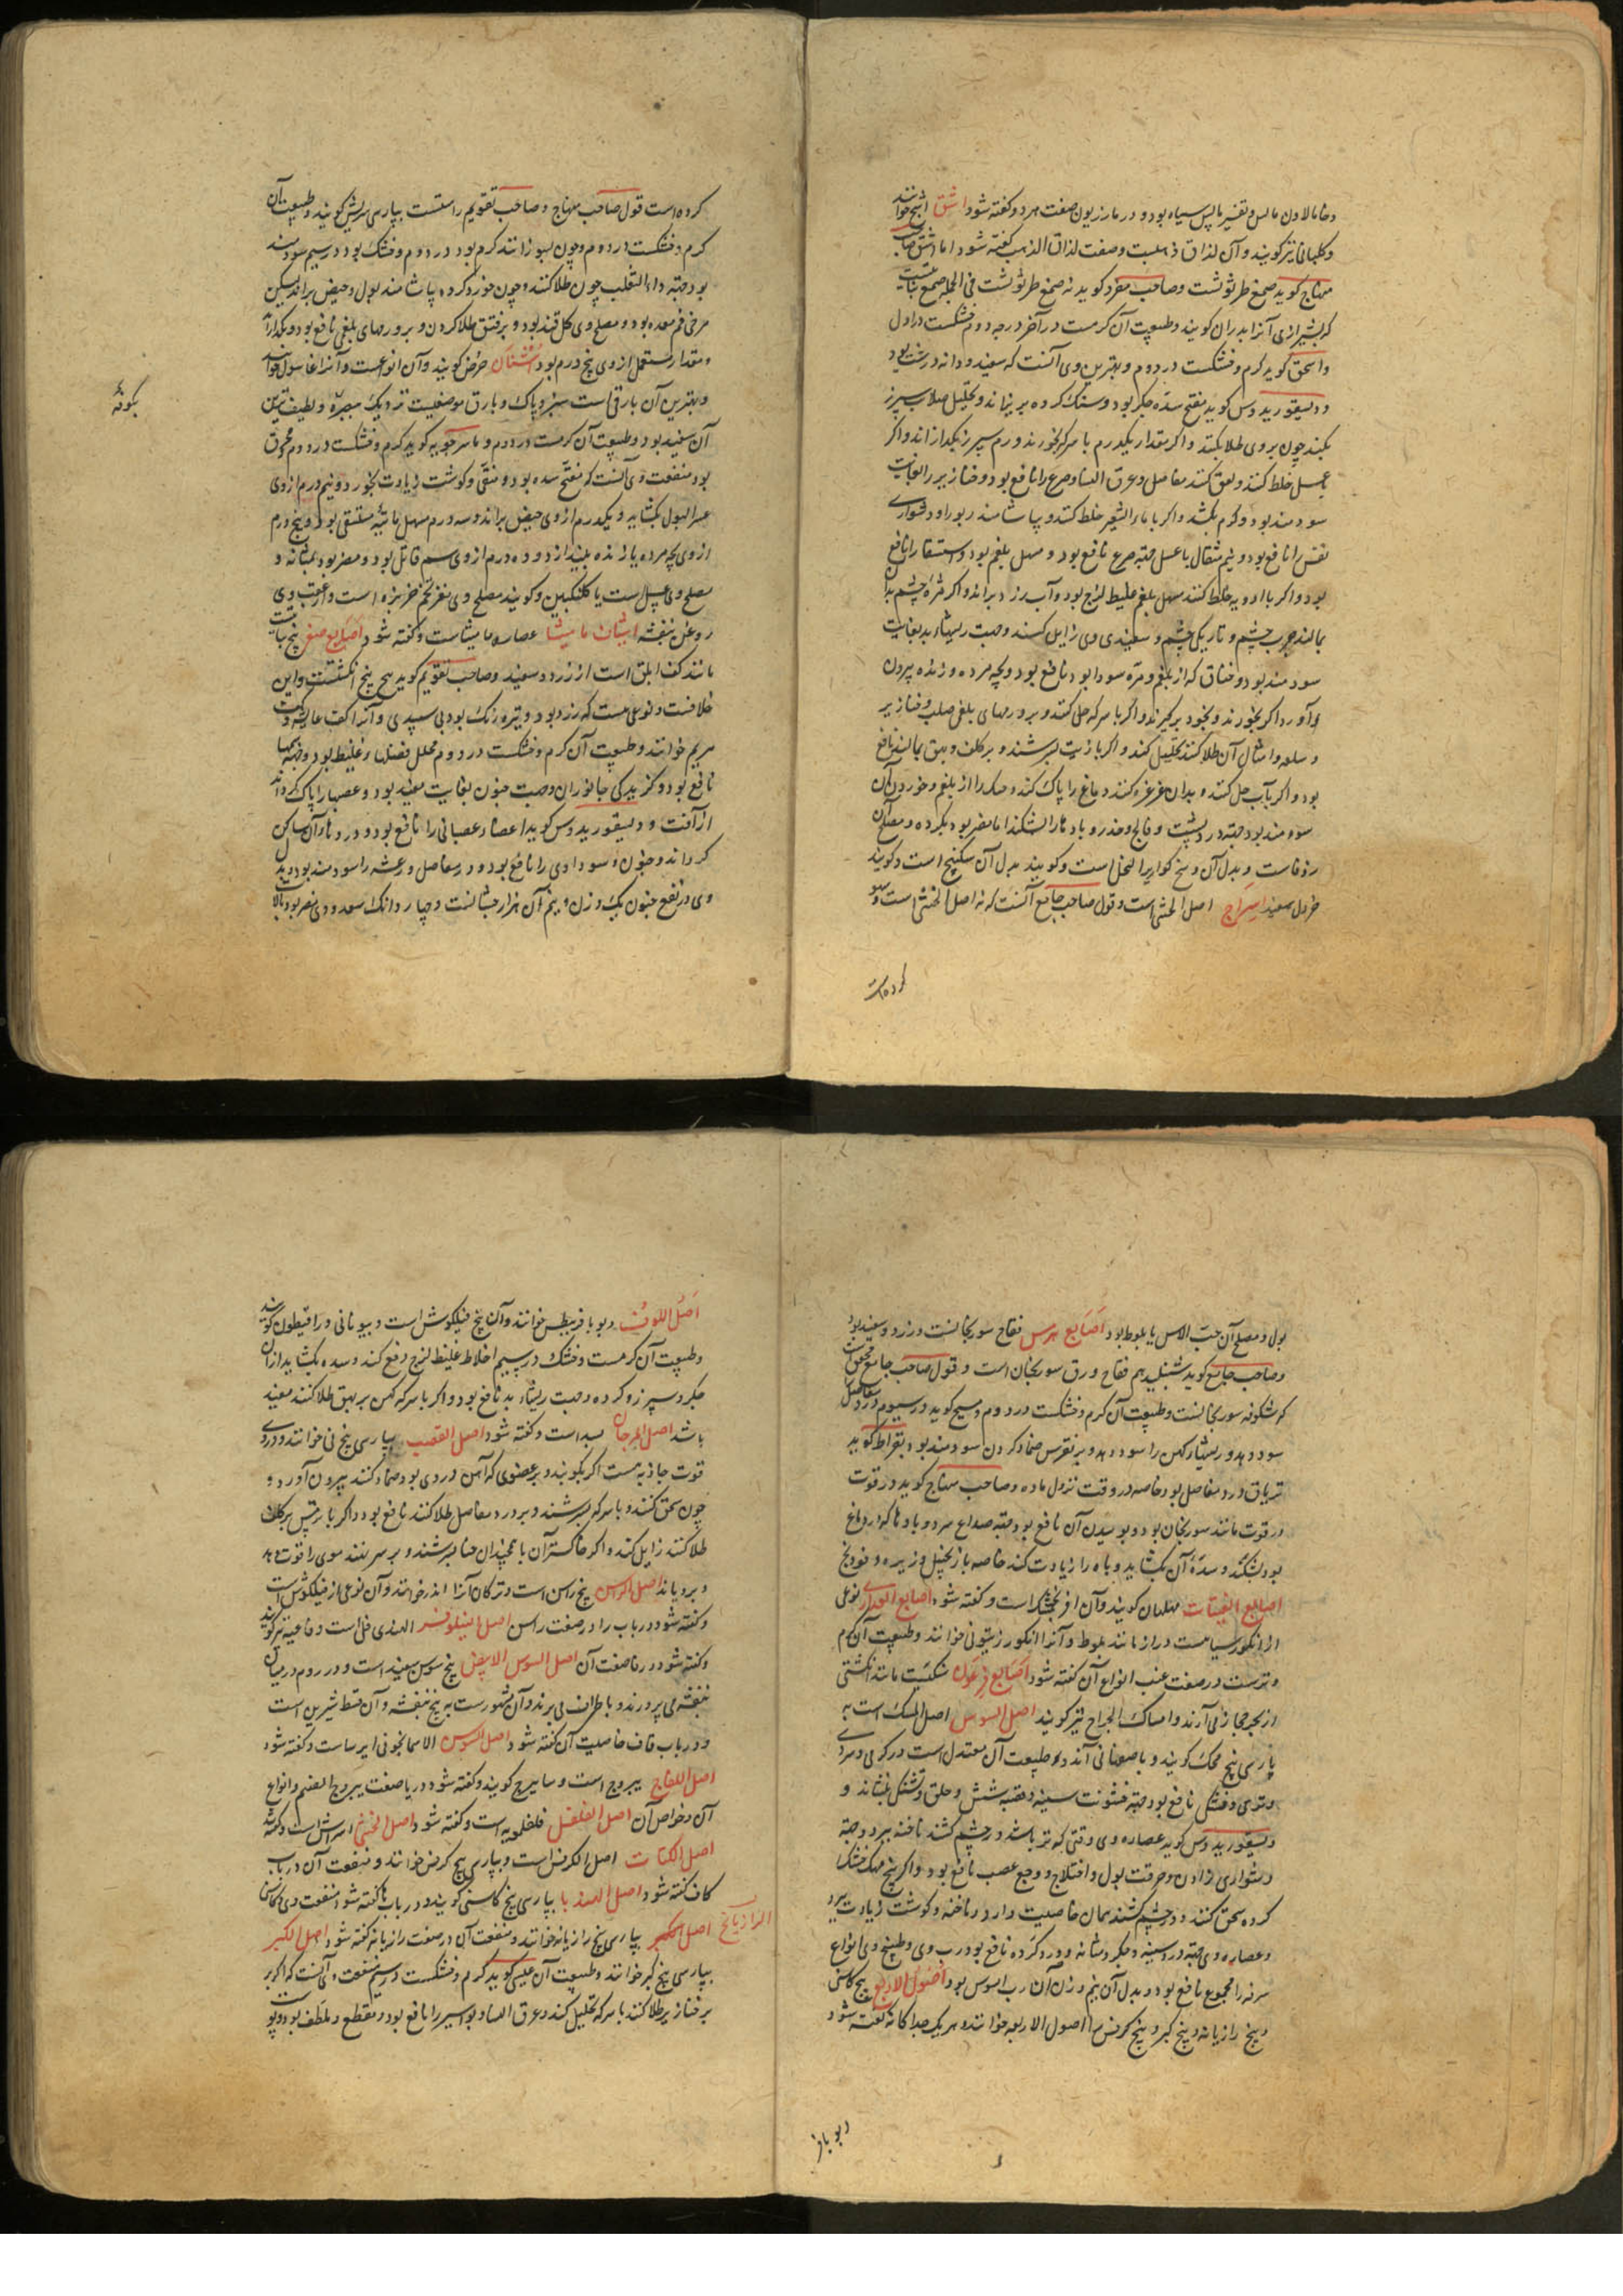 وخامالاون مالس و تفسیر مالس سیاه بود و در مازریون صفت هر دو گفته شود اشق اشج خوانند
و کلبانی نیز گویند و آن لذاق ذهبست و صفت لذاق الذهب گفته شود اما اشق صاحب
منهاج گوید صمغ طرثوثست و صاحب مفرد گوید نه صمغ طرثوثست فی الجمله صمغ نباتیست
که بشیرازی آنرا بدران گویند و طبیعت آن گرمست در آخر درجه دوم خشکست در اول
و اسحق گوید گرم و خشکست در دوم و بهترین وی آنست که سفید و دانه درشت بود
و دیسقوریدوس گوید مفتح سده جگر بود و سنگ گرده بریزاند و تحلیل صلابت سپرز
بکند چون بر وی طلا کنند و اگر مقدار یکدرم با سرکه بخورند ورم سپرز بگدازاند و اگر
بعسل خلط کنند و لعق کنند مفاصل و عرق النسا و صرع را نافع بود و خنازیر را بغایت
سودمند بود و کرم بکشد و اگر با ماء الشعیر خلط کنند و بیاشامند ربو را و دشواری
نفس را نافع بود و نیم مثقال با عسل جهة صرع نافع بود و مسهل بلغم بود و استسقا را نافع
بود و اگر با ادویه خلط کنند مسهل بلغم غلیظ لزج بود و آب زرد براند و اگر مژه چشم بدان
بمالند جرب چشم و تاریکی چشم و سفیدی وی زایل کند و جهت ریشهاء بد بغایت
سودمند بود و خناق که از بلغم و مره سودا بود نافع بود و بچه مرده و زنده بیرون
آورد اگر بخورند و بخود برگیرند و اگر با سرکه حل کنند و بر ورمهای بلغمی صلب و خنازیر
و سلعه و امثال آن طلا کنند تحلیل کند و اگر با زیت بسرشند و بر کلف و بهق بمالند نافع
بود و اگر بآب حل کنند و بدان غرغره کنند دماغ را پاک کند و معده را از بلغم و خوردن آن
سودمند بود جهة درد پشت و فالج و خدر و بادها را بشکند اما مضر بود بگرده و مصلح آن
زوفاست و بدل آن وسخ کواریر النحل است و گویند بدل آن سکبینج است و گویند
خردل سفید اسراج اصل الخنثی است و قول صاحب جامع آنست که نه اصل الخنثی است و سهو
کرده است
کرده است قول صاحب منهاج و صاحب تقویم راستست بپارسی سریش گویند و طبیعت آن
گرم و خشکست در دوم و چون بسوزانند گرم بود در دوم و خشک بود در سیم سودمند
بود جهة داء الثعلب چون طلا کنند و چون خورد کرده بیاشامند بول و حیض براند لیکن
مرخی فم معده بود و مصلح وی گل قند بود و بر فتق طلا کردن و بر ورمهای بلغمی نافع بود و بگدازد
و مقدار مستعمل از وی پنج درم بود اشنان حرض گویند و آن انواعست و آنرا غاسول خوانند
و بهترین آن بارقی است سبز و پاک و بارق موضعیست نزدیک بحیره و لطیف ترین
آن سفید بود و طبیعت آن گرمست در دوم و ماسرجویه گوید گرم و خشکست در دوم محرق
بود منفعت وی آنست که مفتح سده بود و منقی و گوشت زیادت بخورد و نیم درم از وی
عسر البول بگشاید و یکدرم از وی حیض براند و سه درم مسهل مائیه مستسقی بود و پنج درم
از وی بچه مرده یا زنده بیندازد و ده درم از وی سم قاتل بود و مضر بود بمثانه و
مصلح وی عسل است یا کلنگبین و گویند مصلح وی مغز تخم خربزه است و از عقب وی
روغن بنفشه اشیاف مامیثا عصاره مامیثاست و گفته شود اصابع صفر بیخ نباتیست
مانند کف ابلق است از زرد و سفید و صاحب تقویم گوید بیخ پنج انگشتست و این
خلافست و نوعی هست که زرد بود و تیره رنگ بود بی سپیدی و آنرا کف عایشه و کف
مریم خوانند و طبیعت آن گرم و خشکست در دوم محلل فضلهاء غلیظ بود و زخمها
نافع بود و گزیدگی جانوران و جهت جنون بغایت مفید بود و عصبها را پاک گرداند
از آفت و دیسقوریدوس گوید اعضاء عصبانی را نافع بود و دردهاء آن ساکن
گرداند و جنون و سوداوی را نافع بود و درد مفاصل و رعشه را سودمند بود و بدل
وی در نفع جنون یک وزن و نیم آن هزارجشانست و چهار دانگ سعد و وی مضر بود بآلات
بگونه
بول و مصلح آن حب الاس یا بلوط بود اصابع هرمس فقاح سورنجانست و زرد و سفید بود
و صاحب جامع گوید شنبلید هم فقاح و ورق سورنجان است و قول صاحب جامع محققست
که شکوفه سورنجانست و طبیعت آن گرم و خشکست در دوم و مسیح گوید در سیوم درد مفاصل
سود دهد و ریشهاء کهن را سود دهد و بر نقرس ضماد کردن سودمند بود و بقراط گوید
تریاق درد مفاصل بود خاصه در وقت نزول ماده و صاحب منهاج گوید در قوت
در قوت مانند سورنجان بود و بوییدن آن نافع بود جهة صداع سرد و بادها که در دماغ
بود بشکند و سده آن بگشاید و باه را زیادت کند خاصه با زنجبیل و زیره و فودنج
اصابع الفتیات مهلهان گویند و آن افرنجمشک است و گفته شود اصابع العذاری نوعی
از انگور سیاهست دراز مانند بلوط و آنرا انگور زیتونی خوانند و طبیعت آن گرم
و ترست و در صفت عنب انواع آن گفته شود اصابع فرعون سنگیست مانند انگشتی
از بحر حجاز می آرند و امساک الجراح نیز گویند اصل السوس اصل المسک است به
پارسی بیخ محک گویند و باصفهانی آند و طبیعت آن معتدل است در گرمی و سردی
و تری و خشکی نافع بود جهة خشونت سینه و قصبه شش و حلق و تشنگی بنشاند و
دیسقوریدوس گوید عصاره وی وقتی که تر باشد و در چشم کشند ناخنه ببرد و جهة
دشواری زادن و حرقت بول و اختلاج و وجع عصب نافع بود و اگر بیخ مهک خشک
کرده سحق کنند و در چشم کشند همان خاصیت دارد و ناخنه و گوشت زیادت ببرد
و عصاره وی جهة درد سینه و جگر و مثانه و درد گرده نافع بود و رب وی و طبیخ وی انواع
سرفه را مجموع نافع بود و بدل آن نیم وزن آن رب السوس بود اصول الاربع بیخ کاسنی
و بیخ رازیانه و بیخ کبر و بیخ کرفس را اصول الاربعه خوانند و هر یک جداگانه گفته شود
دیوباز
اصل اللوف دیوبا فرنیطس خوانند و آن بیخ فیلگوش است و بیونانی دراقیطون گویند
و طبیعت آن گرمست و خشک در سیم اخلاط غلیظ لزج دفع کند و سده بگشاید از آن
جگر و سپرز و گرده و جهت ریشهاء بد نافع بود و اگر با سرکه کهن بر بهق طلا کنند مفید
باشد اصل المرجان بسد است و گفته شود اصل القصب بپارسی بیخ نی خوانند و در وی
قوت جاذبه هست اگر بکوبند و بر عضوی که آهن در وی بود ضماد کنند بیرون آورد و
چون سحق کنند و با سرکه بسرشند و بر درد مفاصل طلا کنند نافع بود و اگر با ترمس بر کلف
طلا کنند زایل کند و اگر خاکستر آن با همچندان حنا بسرشند و بر سر نهند موی را قوت دهد
و برویاند اصل الراسن بیخ راسن است و ترکان آنرا اندز خوانند و آن نوعی از فیلگوش است
و گفته شود در باب را در صفت راسن اصل النیلوفر الهندی فل است و فاغیه نیز گویند
و گفته شود در فا صفت آن اصل السوس الابیض بیخ سوسن سفید است و در روم در میان
بنفشه می پرورند و باطراف می برند و آن مشهورست به بیخ بنفشه و آن قسط شیرین است
و در باب قاف خاصیت آن گفته شود اصل السوسن الاسمانجونی ایرساست و گفته شود
اصل اللفاح یبروج است و سابیزج گویند و گفته شود در یا صفت یبروج الصنم و انواع
آن و خواص آن اصل الفلفل فلفلمویه است و گفته شود اصل الخنثی اسراش است و گفته شد
اصل الکتات اصل الکرفس است و بپارسی بیخ کرفس خوانند و منفعت آن در باب
کاف گفته شود اصل الهندبا بپارسی بیخ کاسنی گویند و در باب ها گفته شود منفعت وی و کاسنی
اصل الرازیانج بپارسی بیخ رازیانه خوانند و منفعت آن در صفت رازیانه گفته شود اصل الکبر
بپارسی بیخ کبر خوانند و طبیعت آن عیسی گوید گرم و خشکست در سیم منفعت وی آنست که اگر بر
بر خنازیر طلا کنند با سرکه تحلیل کند و عرق النسا و بواسیر را نافع بود و مقطع و ملطف بود و پوست